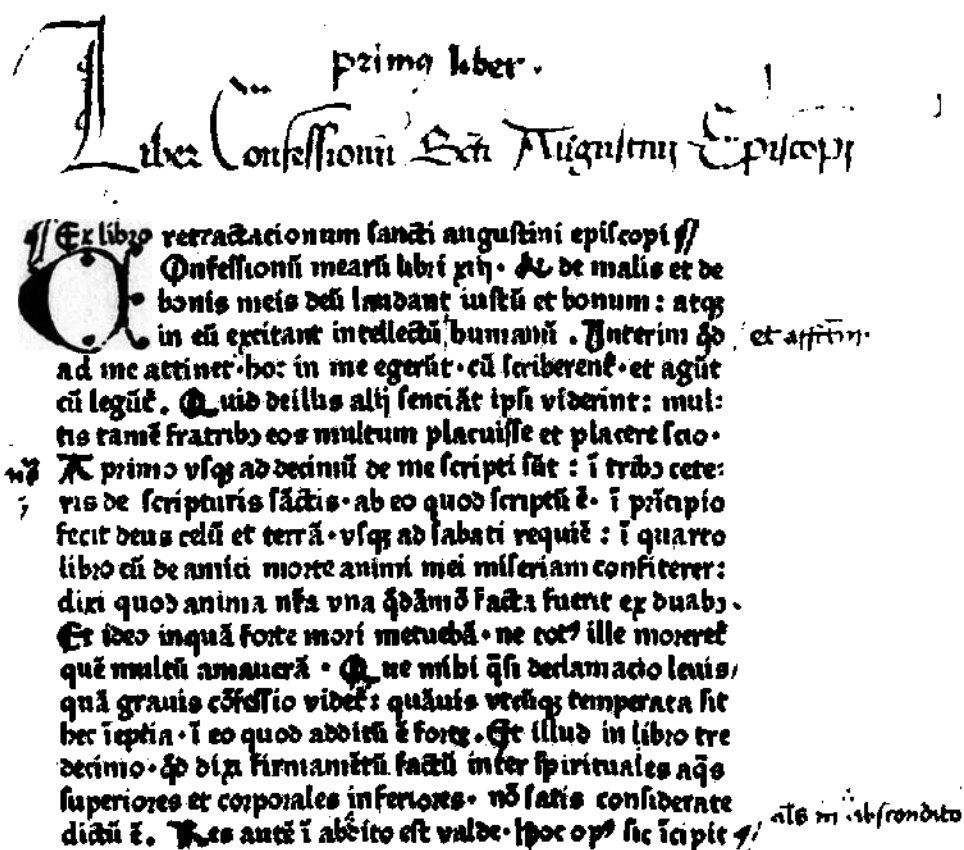 primꝯ liber.
Liber Confessionū Scti Augustini Episcopi
Ex libro retractacionum sancti augustini episcopi
Onfessionū mearū libri xiij. & de malis et de
bonis meis deū laudant iustū et bonum: atqꝫ
in eū excitant intellectū humanū. Interim qđ
ad me attinet·hoc in me egerūt·cū scriberent̄·et agūt
cū legūt̄. Quid deillis alij senciāt ipsi viderint: mul:
tis tamē fratribꝫ eos multum placuisse et placere scio·
A primo vsqꝫ ad decimū de me scripti sūt: ī tribꝫ cete:
ris de scripturis sāctis·ab eo quod scriptū ē· ī prīcipio
fecit deus celū et terrā·vsqꝫ ad sabati requiē: ī quarto
libro cū de amici morte animi mei miseriam confiterer:
dixi quod anima nr̄a vna qđāmō facta fuerit ex duabꝫ.
Et ideo inquā forte mori metuebā·ne totꝰ ille moreret̄
quē multū amauerā· Que mihi q̄si declamacio leuis/
quā grauis cōfessio videt̄: quāuis vtcūqꝫ temperata sit
hec īeptia·ī eo quod additū ē forte. Et illud in libro tre
decimo·qđ dixi firmamētū factū inter spirituales aq̄s
superiores et corporales inferiores· nō satis considerate
dictū ē. Res autē ī abdito est valde·Hoc opꝰ sic īcipit
als in abscondito